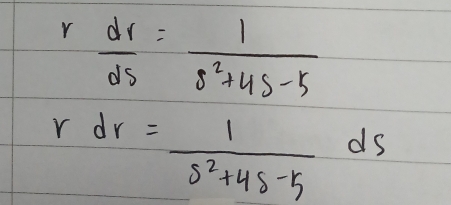 r dr/ds = 1/(s²+4s-5)
r dr = 1/(s²+4s-5) ds